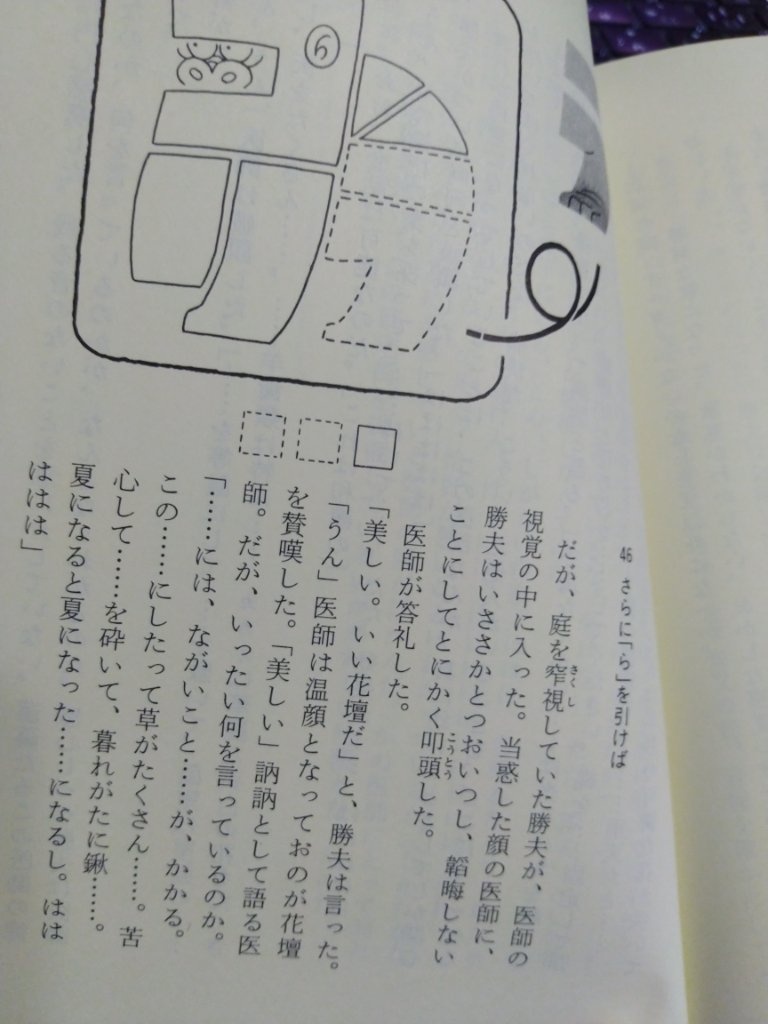 46 さらに「ら」を引けば
だが、庭を窄視していた勝夫が、医師の
視覚の中に入った。当惑した顔の医師に、
勝夫はいささかとつおいつし、韜晦しない
ことにしてとにかく叩頭した。
医師が答礼した。
「美しい。いい花壇だ」と、勝夫は言った。
「うん」医師は温顔となっておのが花壇
を賛嘆した。「美しい」訥訥として語る医
師。だが、いったい何を言っているのか。
「……には、ながいこと……が、かかる。
この……にしたって草がたくさん……。苦
心して……を砕いて、暮れがたに鍬……。
夏になると夏になった……になるし。はは
ははは」